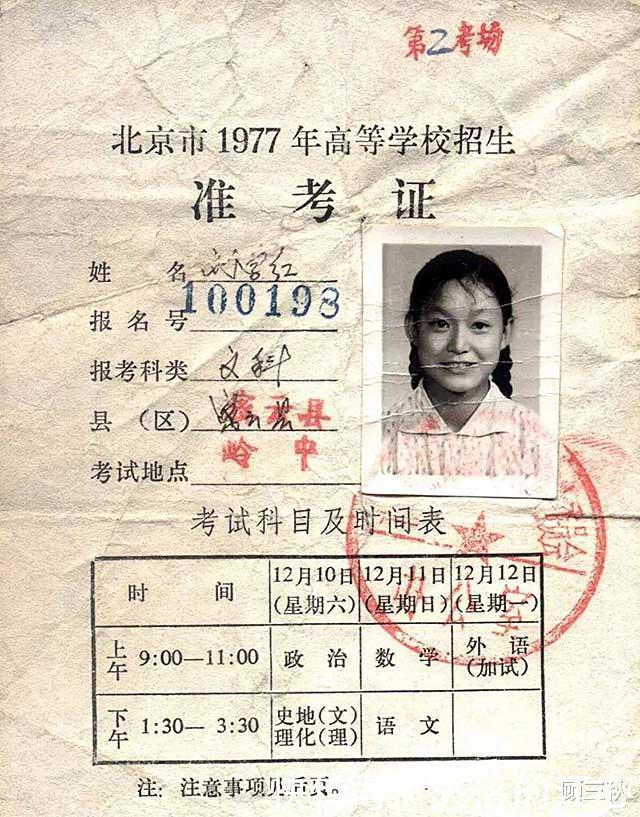 第2考场
北京市1977年高等学校招生
准考证
姓名 刘学红
报名号 100198
报考科类 文科
县（区） 密云县 密云县
考试地点 岭中
考试科目及时间表
时间 12月10日（星期六） 12月11日（星期日） 12月12日（星期一）
上午 9:00—11:00 政治 数学 外语（加试）
下午 1:30—3:30 史地（文）理化（理） 语文
注：注意事项见后页。
顾三秋